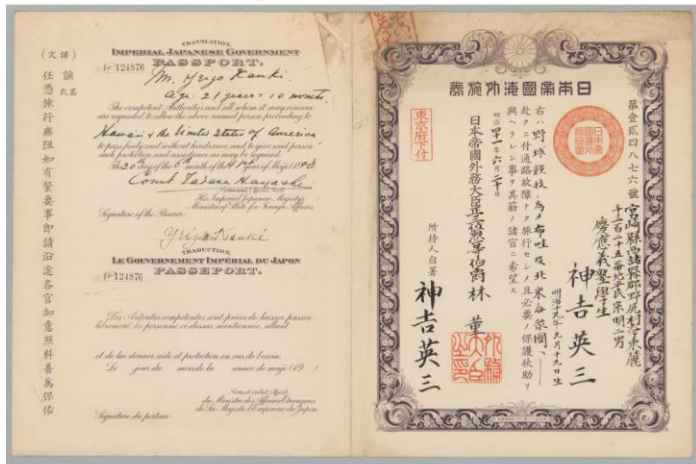 TRANSLATION.
IMPERIAL JAPANESE GOVERNMENT
PASSPORT.
No 124876
Mr. Yeizo Kanki.
Age: 21 years & 10 months.
The competent Authorities and all whom it may concern
are requested to allow the above named person proceeding to
Hawaii & the United States of America
to pass freely and without hindrance, and to give said person
such protection and assistance as may be required.
The 20th day of the 6th month of the 41st year of Meiji (190
Count Tadasu Hayashi
His Imperial Japanese Majesty's
Minister of State for Foreign Affairs.
Signature of the Bearer:
Yeizo Kanki
TRADUCTION.
LE GOUVERNEMENT IMPÉRIAL DU JAPON
PASSEPORT.
No 124876
Les Autorités compétentes sont priées de laisser passer
librement la personne ci-dessus mentionnée, allant
et de lui donner aide et protection en cas de besoin.
Le jour du mois de la année de meiji (19 )
du Ministre des Affaires étrangères
de Sa Majesté l'Empereur du Japon
Signature du porteur:
(譯文)
該氏名
任憑旅行無阻如有緊要事卽請沿途各官加意照料善爲保佑
日本帝國海外旅券
第壹貳四八七六號
宮崎縣西諸縣郡野尻村字東麓
千二百二十五番地平民宗明二男
慶應義塾學生
神吉英三
明治十九年九月十九日生
右ハ野球競技ノ為メ布哇及北米合衆國ヘ
赴クニ付通路故障ナク旅行セシメ且必要ノ保護扶助ヲ
與ヘラレン事ヲ其筋ノ諸官ニ希望ス
明治四十一年六月二十日
東京府下付
日本帝國外務大臣正二位勳一等伯爵林董
外務大臣之印
所持人自署
神吉英三